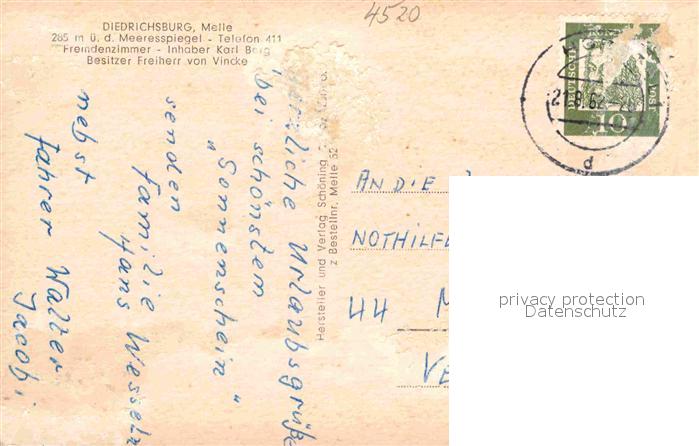 4520
DIEDRICHSBURG, Melle
285 m ü. d. Meeresspiegel - Telefon 411
Fremdenzimmer - Inhaber Karl Berg
Besitzer Freiherr von Vincke
Herzliche Urlaubsgrüße
bei schönstem
"Sonnenschein"
senden
Familie
Hans Wesseln
nebst
Fahrer Walter
Jacobi
Hersteller und Verlag Schöning
Bestellnr. Melle 52
DEUTSCHE
POST
10
21.8.62
d
AN DIE
NOTHILFE
44 M
privacy protection
Datenschutz